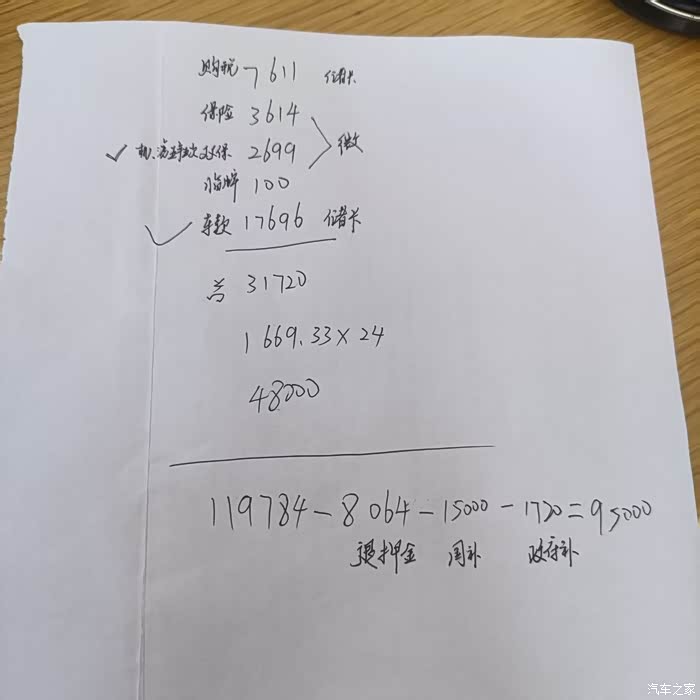 购税 7611 储卡
保险 3614
双保 2699 微
临牌 100
车款 17696 储卡
共 31720
1669.33×24
48000
119784-8064-15000-1720=95000
退押金 国补 政府补
汽车之家